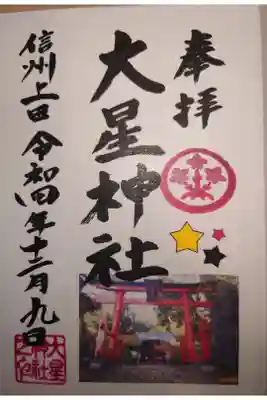 奉拝
大星神社
信州上田 令和四年十二月九日
大星
神社
之印